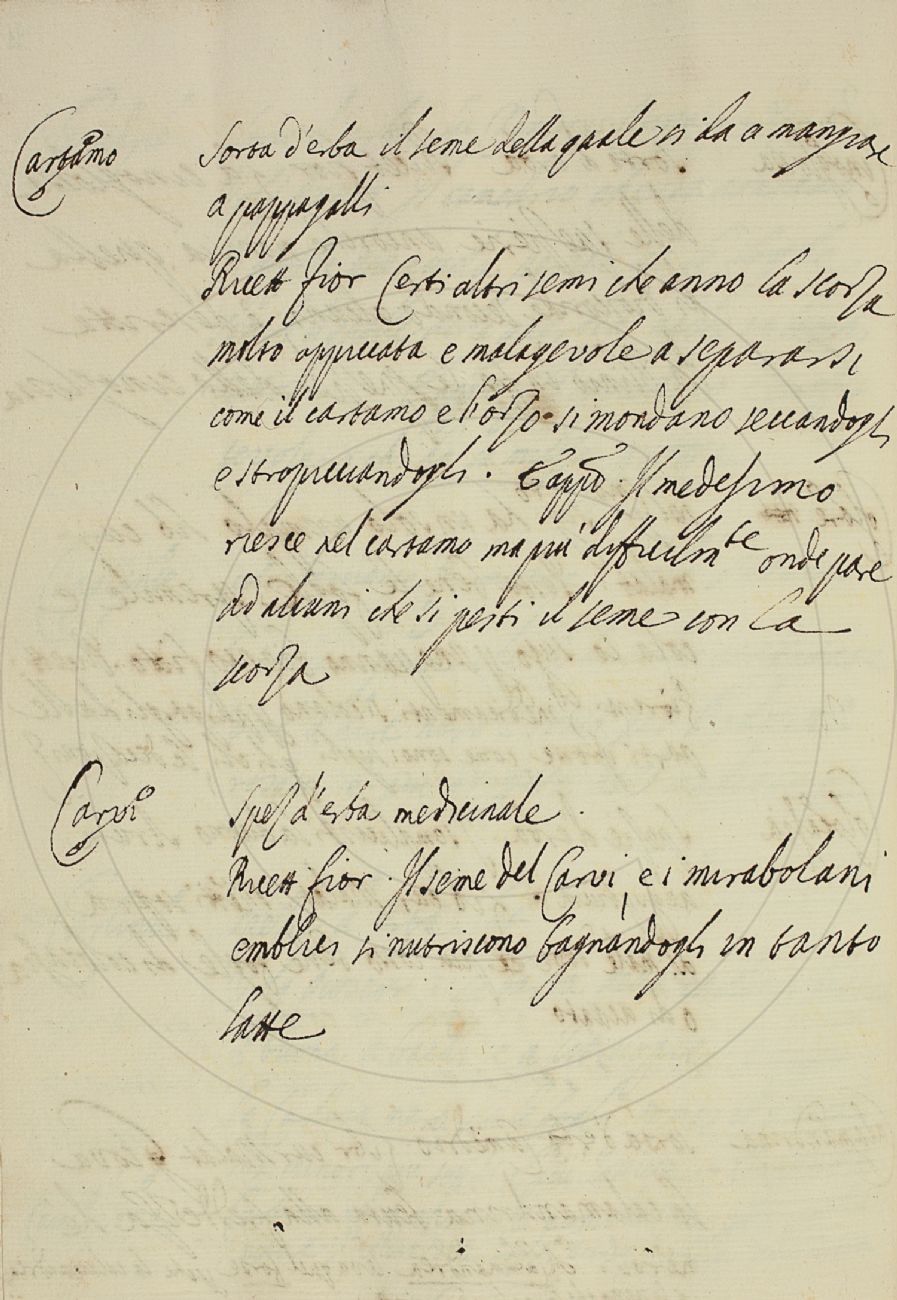 Cartamo Sorta d'erba il seme della quale si da a mangiare
a pappagalli
Ricett fior Certi altri semi che anno la scorza
molto appiccata e malagevole a separarsi
come il cartamo e l'orzo si mondano seccandogli
e stropicciandogli. E appo. Il medesimo
riesce nel cartamo ma piu difficilmte onde pare
ad alcuni che si pesti il seme con la
scorza
Carvi Spez d'erba medicinale.
Ricett fior. Il seme del Carvi, e i mirabolani
emblici si nutriscono bagnandogli in tanto
latte